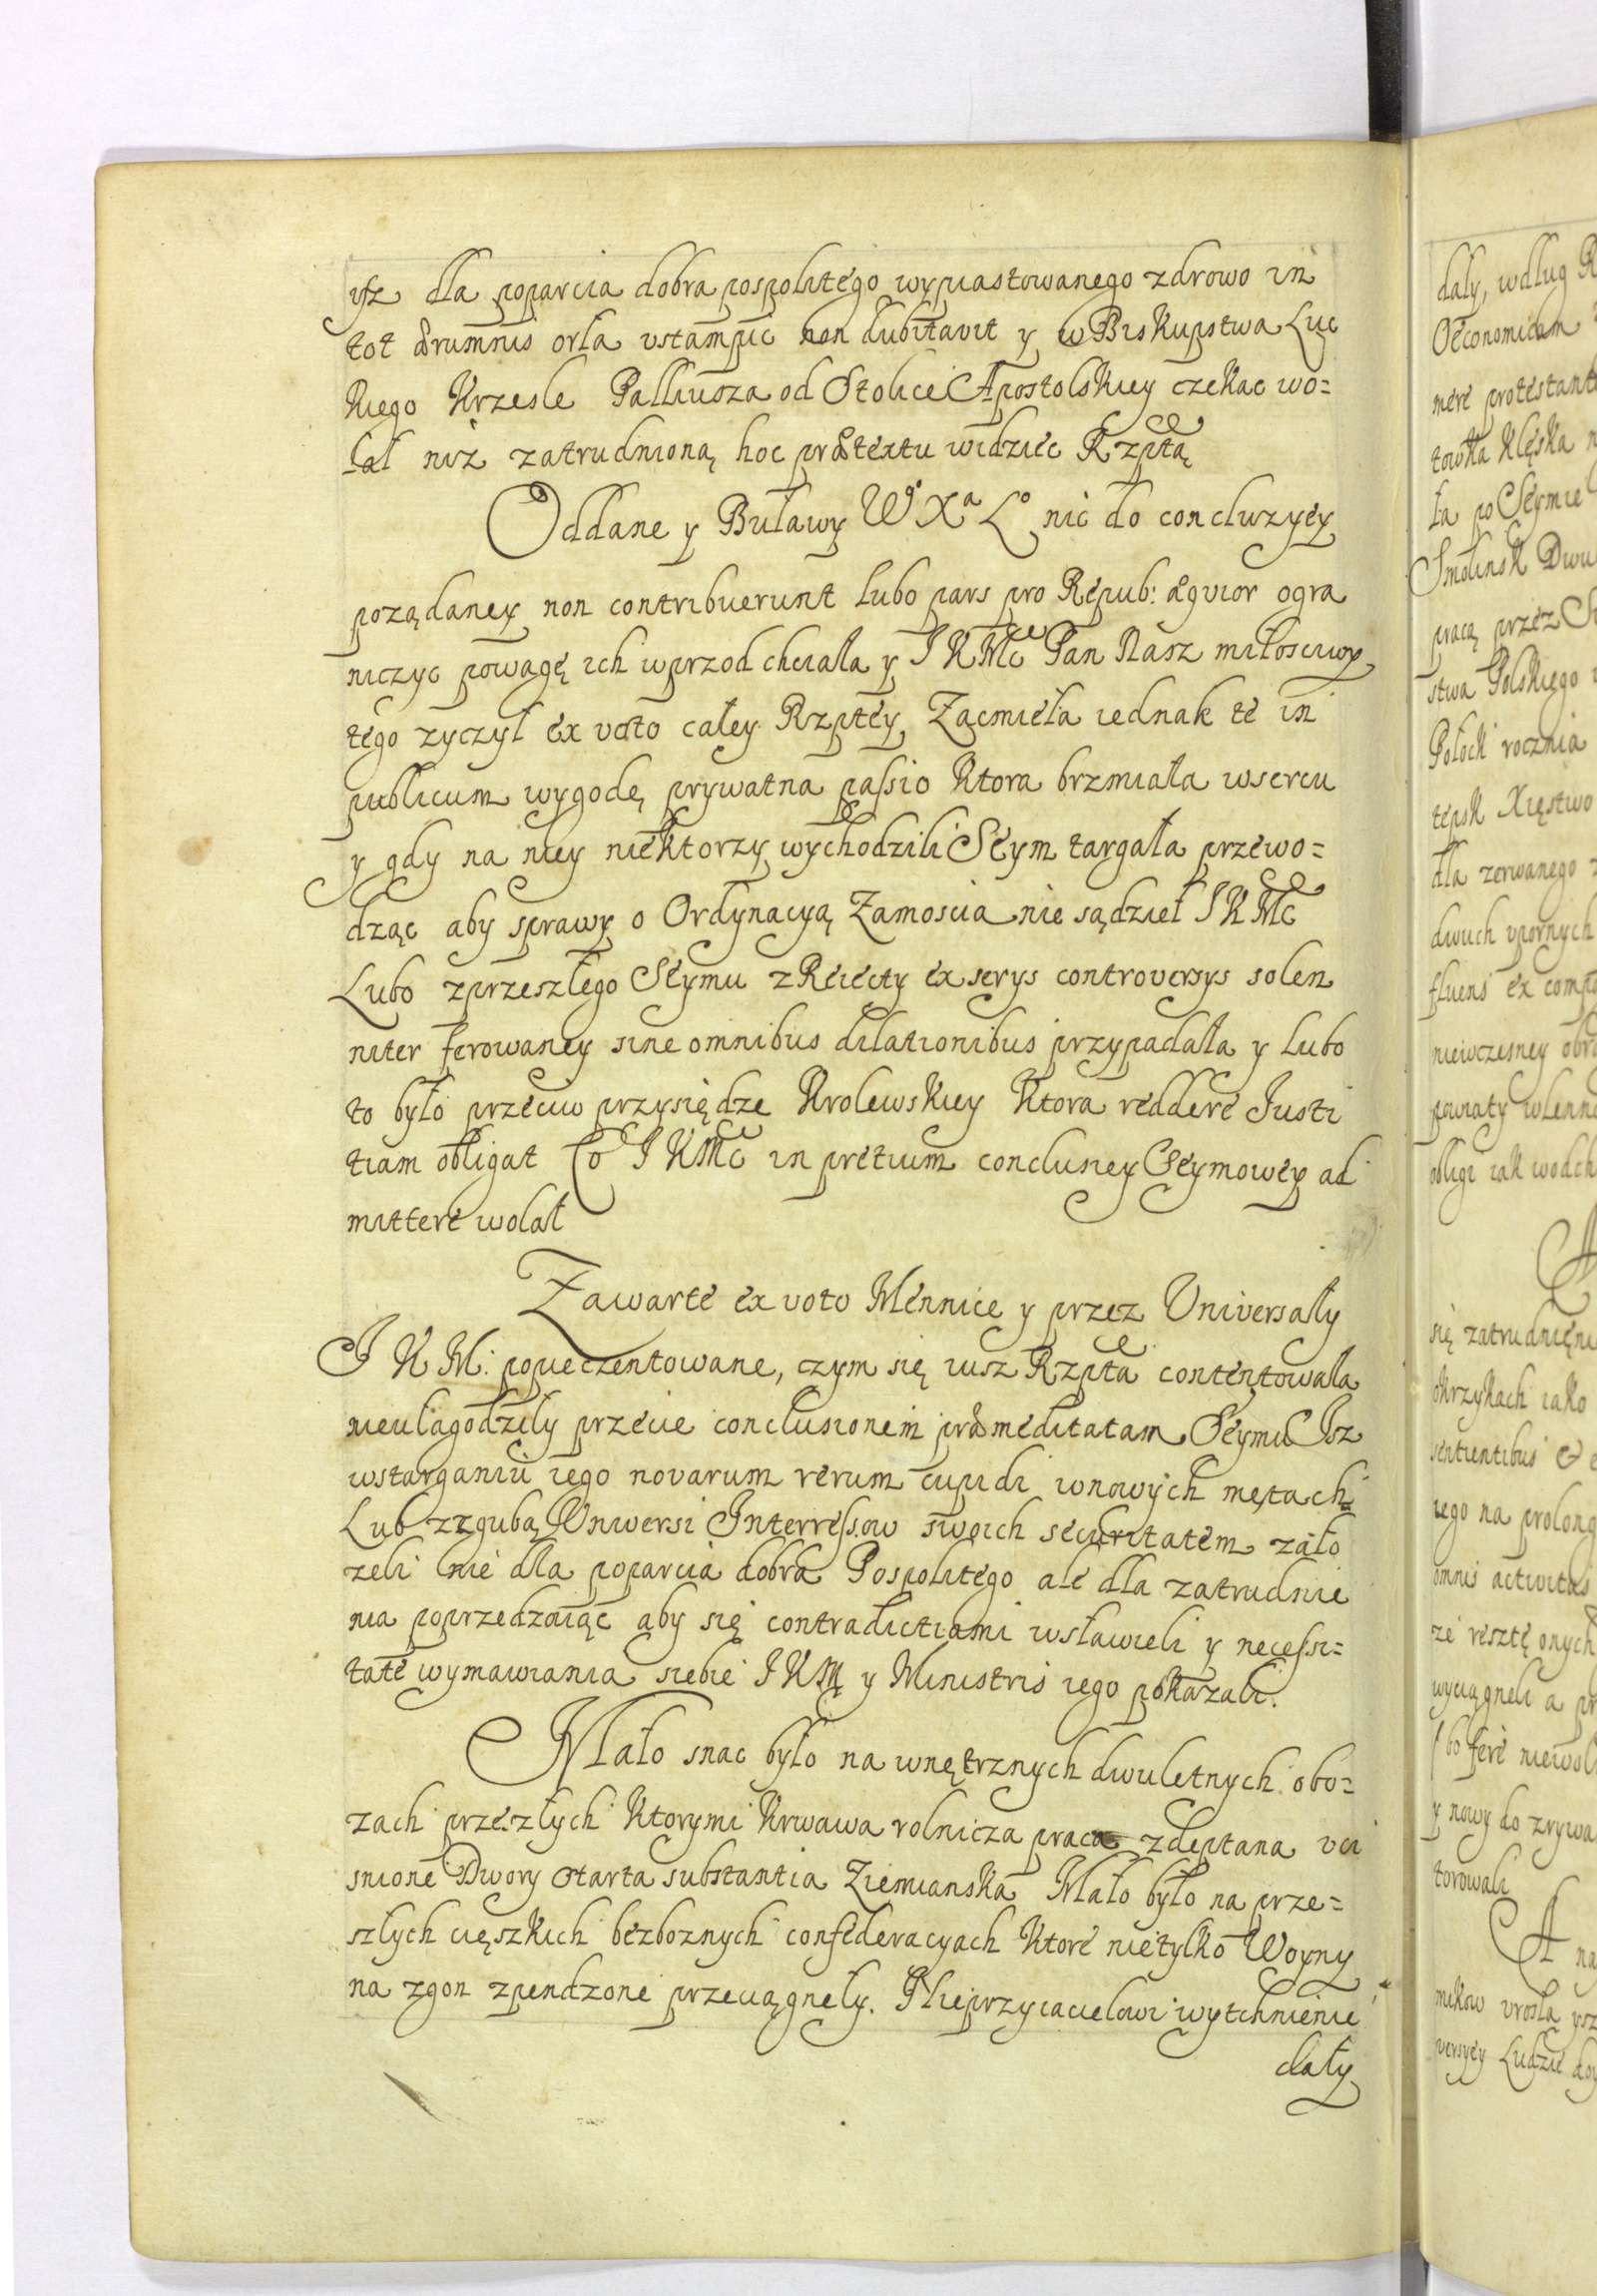 ysz dla poparcia dobra pospolitego wypiastowanego zdrowo in
tot ærumnis orła vstąmpic non dubitavit y w Biskupstwa Łuc
kiego Krzesle Palliusza od Stolice Apostolskiey czekac wo=
lał niz zatrudnioną hoc prætextu widziec Rzptą
Oddane y Buławy Wº Xª Lº nic do concluzyey
poządaney non contribuerunt lubo pars pro Repub: æquior ogra
niczyc powagę ich wprzod chciała y J K Mc Pan Nasz miłosciwy
tego zyczył ex voto całey Rzptey, Zacmieła iednak te in
publicum wygodę prywatna passio Ktora brzmiała wsercu
y gdy na niey niektorzy wychodzili Seym targała przewo=
dząc aby sprawy o Ordynacyą Zamoscia nie sądzieł J K Mc
Lubo zprzeszłego Seymu z Reiecty ex serys controversys solen
niter ferowaney sine omnibus dilationibus przypadała y lubo
to było przeciw przysiędze Krolewskiey Ktora reddere Justi
tiam obligat Co J K Mc in pretium conclusiey Seymowey ad
mittere wolał
Zawarte ex voto Mennice y przez Universały
J K M: popieczentowane, czym się iusz Rzpta contentowała
nieułagodziły przecie conclusionem præmeditatam Seymu Isz
wstarganiu iego novarum rerum cupidi wnowych mętach
Lub zzgubą Universi Interressow swoich securitatem zało
zeli nie dla poparcia dobra Pospolitego ale dla zatrudnie
nia poprzedzaiąc aby się contradictiami wsławieli y necessi=
tate wymawiania siebie J K M y Ministris iego pokazali.
Mało snac było na wnętrznych dwuletnych obo=
zach przeszłych Ktorymi Krwawa rolnicza praca zdeptana vci
snione Dwory starta substantia Ziemianska Mało było na prze=
szłych cięszkich bezboznych confederacyach Ktore nietylko Woyny
na zgon zpendzone przeciągneły. Nieprzyiacielowi wytchnienie
dały
dały, wdług
Oeconomicam
mere
towka Klęska
ła po Seymie
Smolinsk
pracą przez
stwa Polskiego
Połock rocznia
Xięstwo
dla zerwanego
dwuch vpornych
fluens ex
niewczesney
powiaty
obligi iak
się
okrzykach iako
sentientibus &
iego na prolong
omnis activitas
ze resztę onych
wyciągneli a
fere
y nowy do zrywa
torowali
A na
vrosła
Ludzie